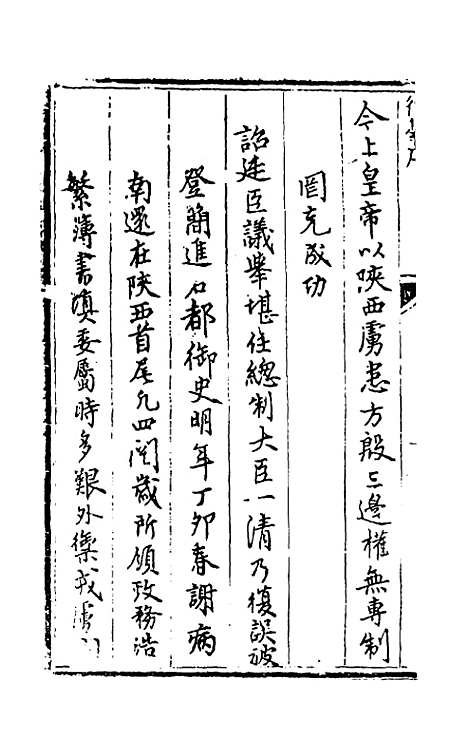 今上皇帝以陝西虜患方殷三邊權無專制
罔克成功
詔廷臣議舉堪任總制大臣一清乃復誤被
登簡進右都御史明年丁卯春謝病
南還在陝西首尾凡四閱歲所領政務浩
繁簿書填委屬時多艱外禦戎虜